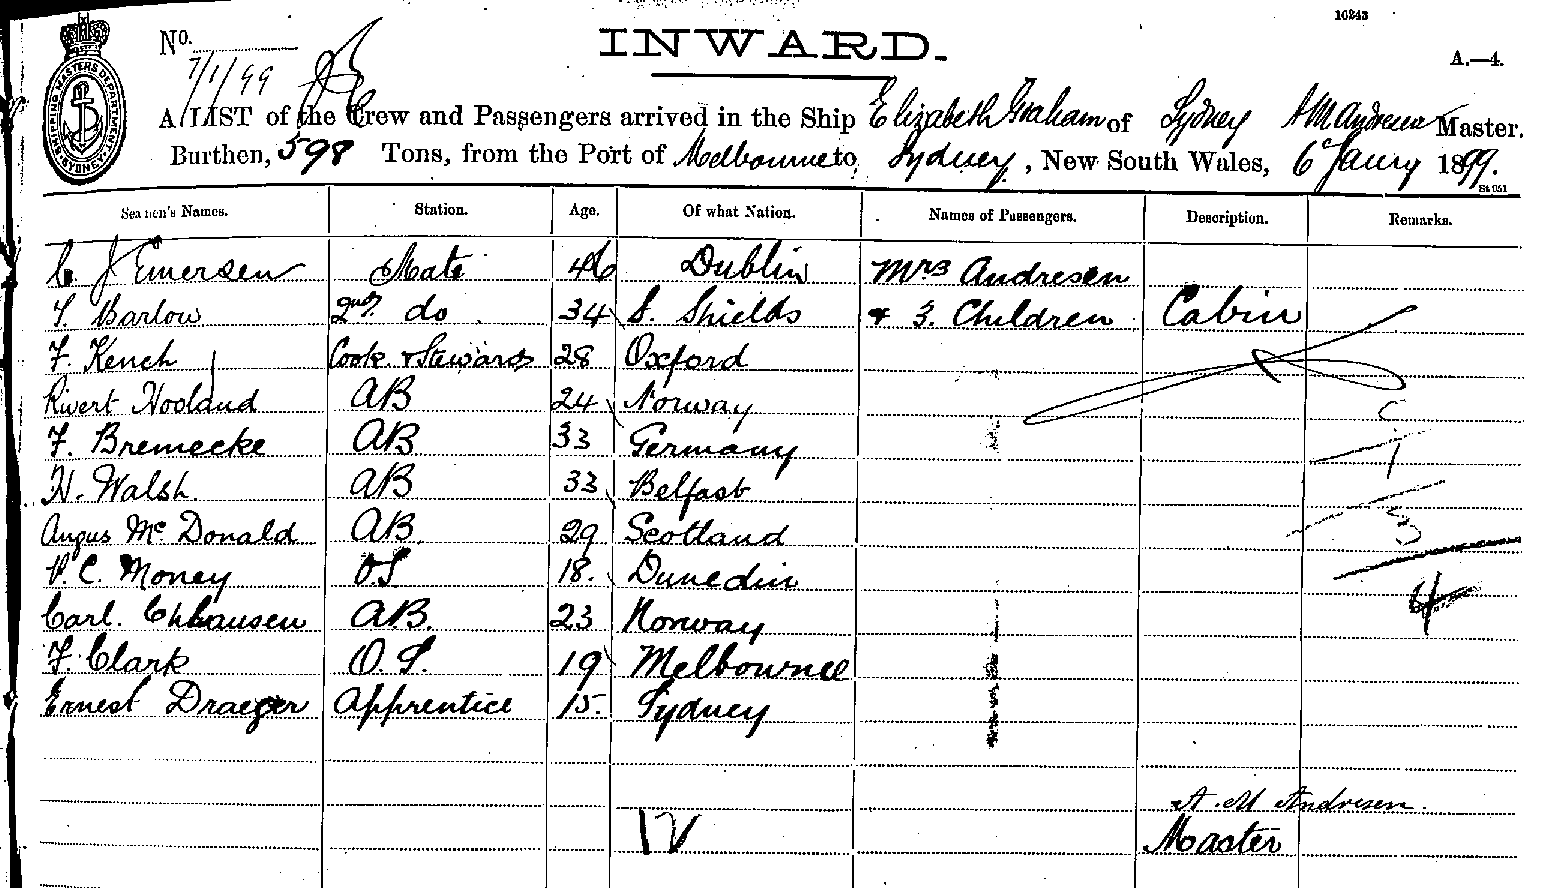 16243
No.
INWARD.
A.—4.
7/1/99
A LIST of the Crew and Passengers arrived in the Ship Elizabeth Graham of Sydney A M Andresen Master.
Burthen, 598 Tons, from the Port of Melbourne to Sydney, New South Wales, 6 Jany 1899.
St 051
SHIPPING MASTERS DEPARTMENT SYDNEY
Seamen's Names. Station. Age. Of what Nation. Names of Passengers. Description. Remarks.
C J Emersen Mate 46 Dublin Mrs Andresen
T. Barlow 2nd do 34 S. Shields & 3. Children Cabin
F. Kench Cook & Steward 28 Oxford
Rivert Hooland AB 24 Norway
F. Bremecke AB 33 Germany
H. Walsh AB 33 Belfast
Angus Mc Donald AB. 29 Scotland
P. C. Money OS 18. Dunedin
Carl. AB. 23 Norway 4
F. Clark O.S. 19 Melbourne
Ernest Draeger Apprentice 15. Sydney
A. M Andresen.
Master